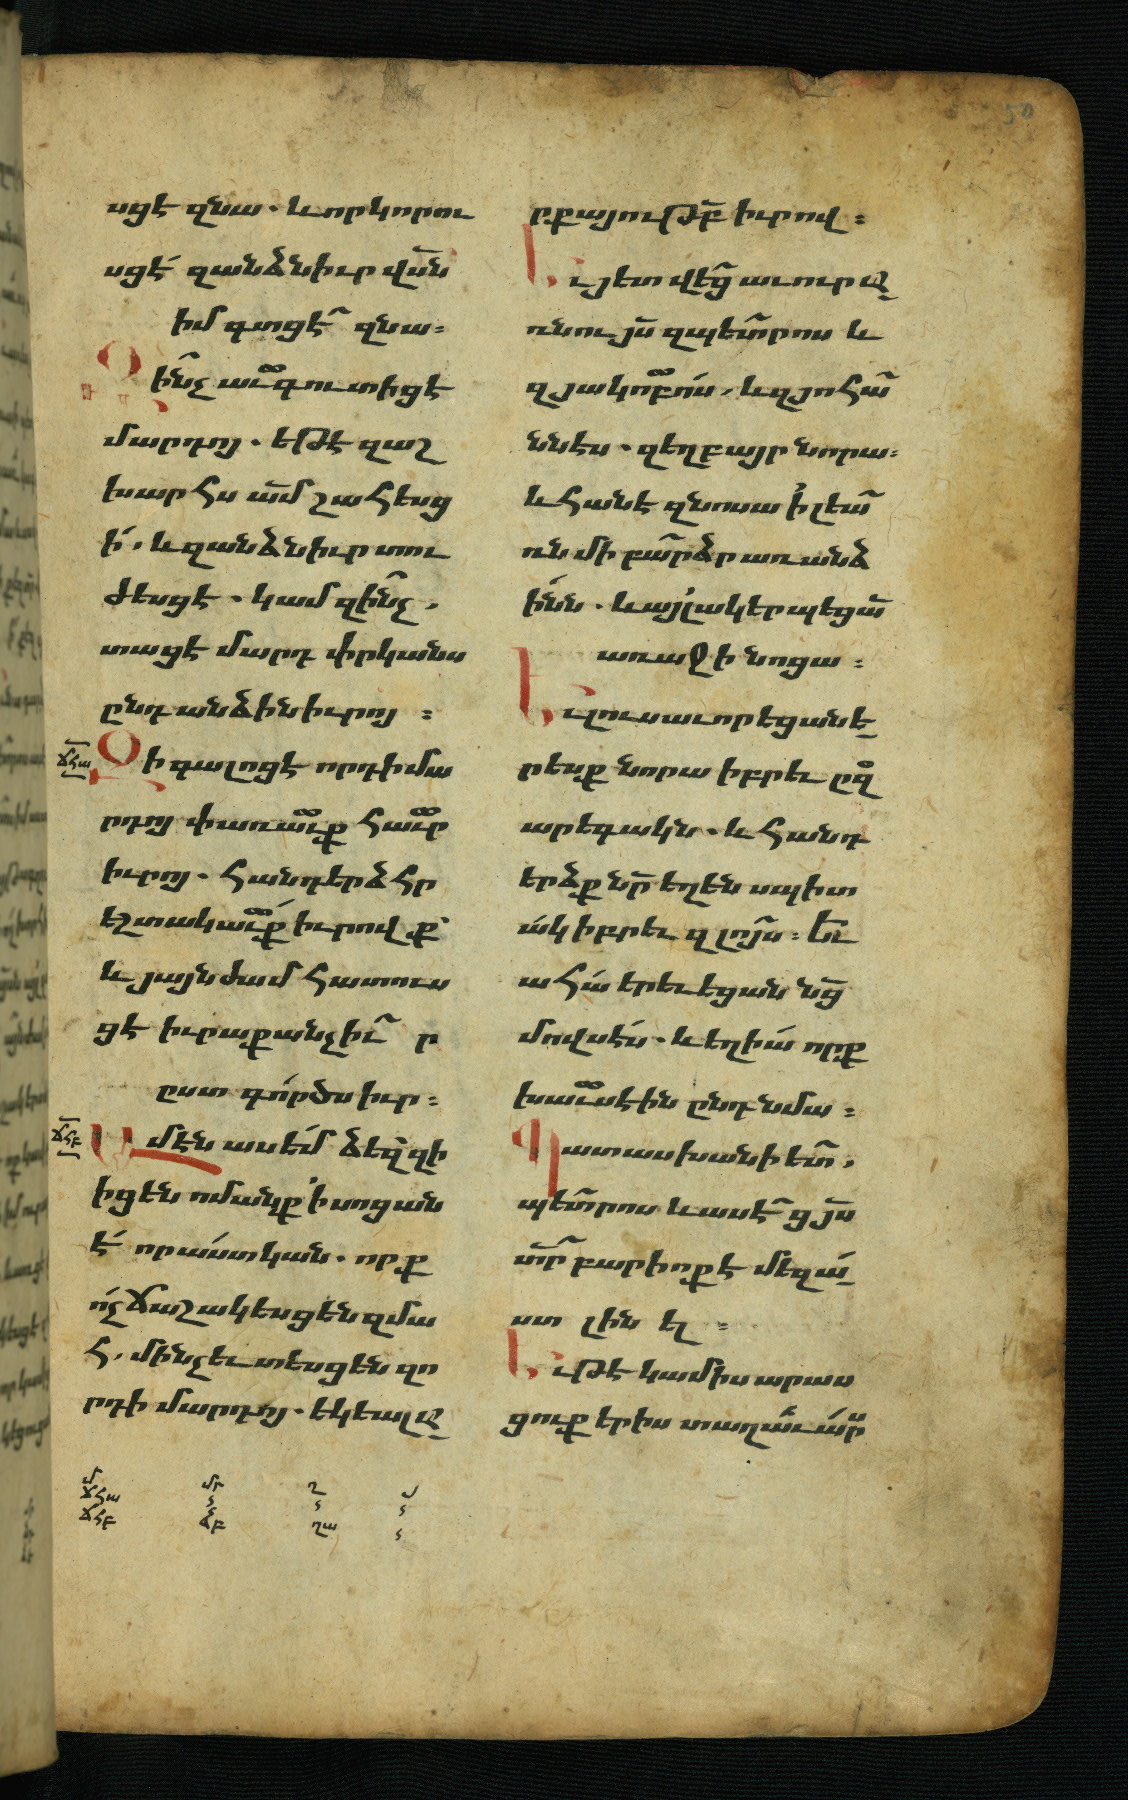 սցէ զնա. և որ կորու
սցէ զանձն իւր վսն
իմ գտցէ զնա:
Զինչ աւգուտ իցէ
մարդոյ. եթէ զաշ
խարհս ամ շահեսց
ի. և զանձն իւր տու
ժեսցէ. կամ զինչ.
տացէ մարդ փրկանս
ընդ անձին իւրոյ :
ՃՀԱ
Զի գալոցէ որդի մա
րդոյ փառաւք հաւր
իւրոյ. հանդերձ հր
եշտակաւք իւրովք
և յայնժամ հատուս
ցէ իւրաքանչիւ ր
ըստ գործս իւր:
ՃՀԲ
Ամէն ասեմ ձեզ զի
իցեն ոմանք ի սոցան
է որ աստ կան. որք
ոչ ճաշակեսցեն զմա
հ. մինչև տեսցեն զո
րդի մարդոյ. եկեալ ջ
րքայութբ իւրով:
Եւ յետ վեց աւուր ա
ռնու յս զպետրոս և
զյակոբոս, և զյոհա
ննէս. զեղբայր նորա:
և հանէ զնոսա ի լեա
ռն մի բարձր առանձ
ինն. և այլակերպեցա
առաջի նոցա:
Եւ լուսաւորեցան ե
րեսք նորա իբրև ըզ
արեգակն. և հանդ
երձք նր եղեն սպիտ
ակ իբրև զլոյս: Եւ
ահա երևեցան նց
մովսէս. և եղիա որք
խաւսէին ընդ նմա:
Պատասխանի ետ.
պետրոս և ասէ ցյս
տր բարիոք է մեզ ա
ստ լինել :
Եւ թէ կամիս արաս
ցուք երիս տաղաւարս
մ մր ղ յ
ՃՀԱ
ՃՀԲ ՁԲ ՂԱ
50